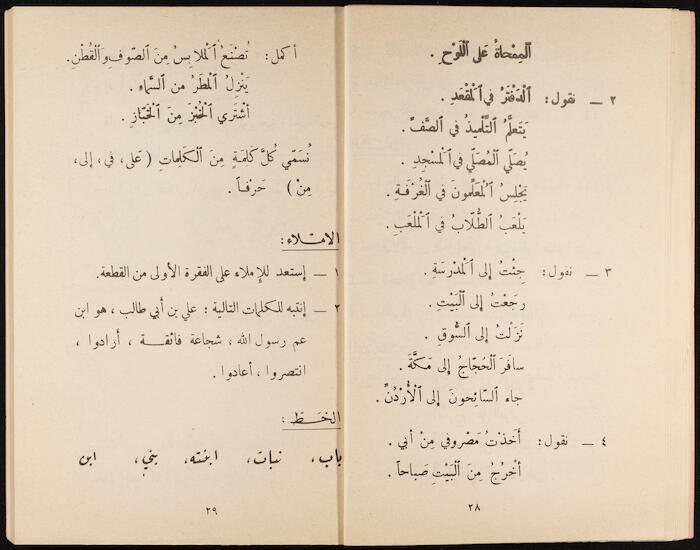 المِمْحاةُ عَلى اللَّوْحِ .
٢ ــ نقول: الدَفْتَرُ في المَقْعَدِ .
يَتَعلَّمُ التِّلْميذُ في الصَّفِّ .
يُصَلّي المُصَلّي في المَسْجِدِ .
يَجْلِسُ المُعَلِّمونَ في الغُرْفَةِ .
يَلْعَبُ الطُّلّابُ في المَلْعَبِ .
٣ ــ نقول: جِئْتُ إلى المَدْرَسَةِ .
رجَعْتُ إلى البَيْتِ .
نَزَلْتُ إلى السُّوقِ .
سافَرَ الحُجّاجُ إلى مَكَّةَ .
جاء السّائِحونَ إلى الأُرْدُنِّ .
٤ ــ نقول: أَخَذْتُ مَصْروفي مِنْ أبي .
أخْرُجُ مِنَ البَيْتِ صَباحاً .
٢٨
أكمل: تُصْنَعُ المَلابِسُ مِنَ الصّوفِ وَالقُطْنِ .
يَنْزِلُ المَطَرُ مِن السَّماءِ .
أشْتَري الخُبْزَ مِنَ الخَبّازِ .
نُسَمّي كُلَّ كَلِمَةٍ مِنَ الكَلِماتِ ( عَلى ، في ، إلى ،
مِنْ ) حَرْفاً .
الاملاء :
١ ــ إستعد للإملاء على الفقرة الأولى من القطعة.
٢ ــ إنتبه للكلمات التالية : علي بن أبي طالب ، هو ابن
عم رسول الله ، شجاعة فائقة ، أرادوا ،
انتصروا ، أعادوا .
الخط :
باب، نبات، ابنته، بني، ابن
٢٩